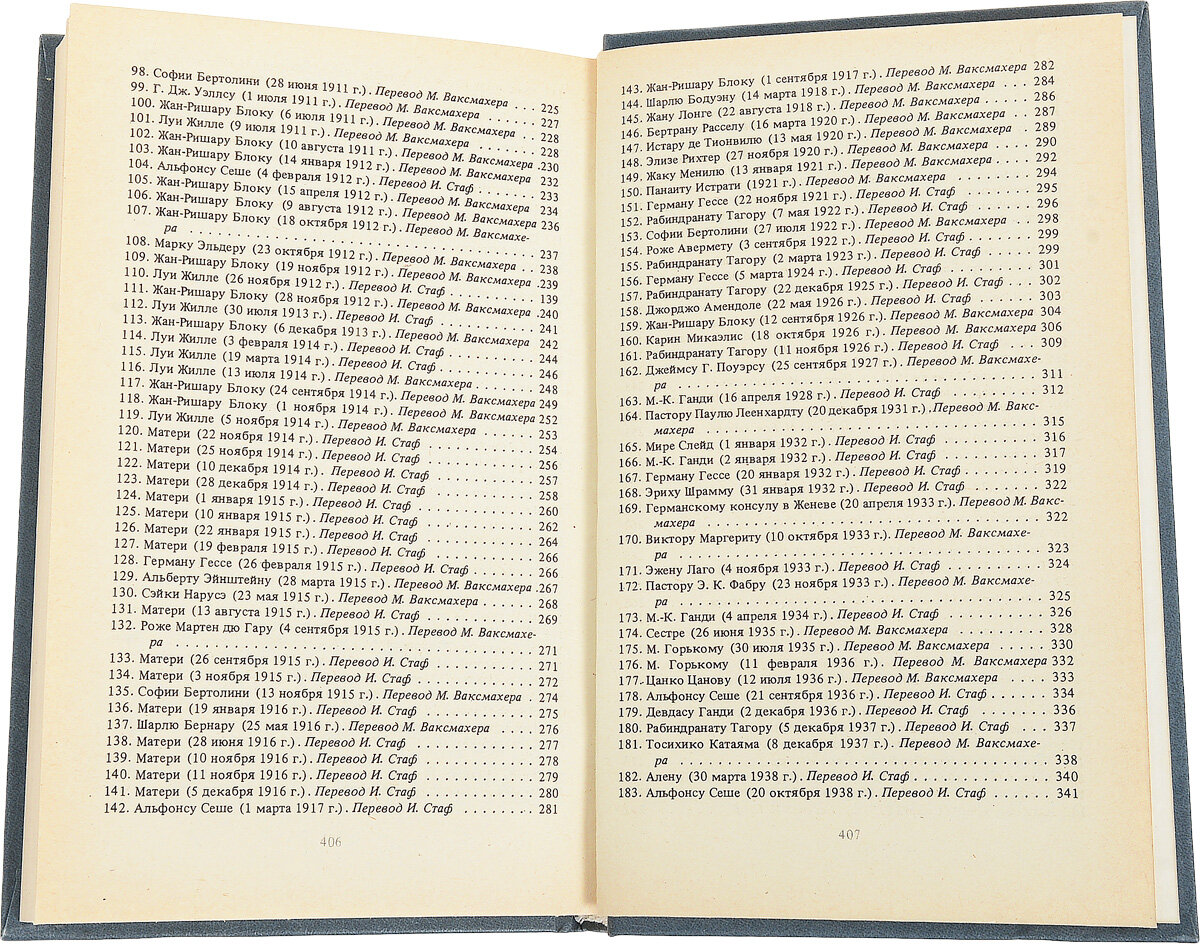 98. Софии Бертолини (28 июня 1911 г.). Перевод М. Ваксмахера . . . 225
99. Г. Дж. Уэллсу (1 июля 1911 г.). Перевод М. Ваксмахера . . . . . . 227
100. Жан-Ришару Блоку (6 июля 1911 г.). Перевод М. Ваксмахера . . 228
101. Луи Жилле (9 июля 1911 г.). Перевод М. Ваксмахера . . . . . . . 228
102. Жан-Ришару Блоку (10 августа 1911 г.). Перевод М. Ваксмахера .230
103. Жан-Ришару Блоку (14 января 1912 г.). Перевод М. Ваксмахера 232
104. Альфонсу Сеше (4 февраля 1912 г.). Перевод И. Стаф . . . . . . 233
105. Жан-Ришару Блоку (15 апреля 1912 г.). Перевод М. Ваксмахера 234
106. Жан-Ришару Блоку (9 августа 1912 г.). Перевод М. Ваксмахера 236
107. Жан-Ришару Блоку (18 октября 1912 г.). Перевод М. Ваксмахе-
ра . . . . . . . . . . . . . . . . . . . . . . . . . . . . . . 237
108. Марку Эльдеру (23 октября 1912 г.). Перевод М. Ваксмахера . . 238
109. Жан-Ришару Блоку (19 ноября 1912 г.). Перевод М. Ваксмахера .239
110. Луи Жилле (26 ноября 1912 г.). Перевод И. Стаф . . . . . . . . 139
111. Жан-Ришару Блоку (28 ноября 1912 г.). Перевод М. Ваксмахера .240
112. Луи Жилле (30 июля 1913 г.). Перевод И. Стаф . . . . . . . . . 241
113. Жан-Ришару Блоку (6 декабря 1913 г.). Перевод М. Ваксмахера 242
114. Луи Жилле (3 февраля 1914 г.). Перевод И. Стаф . . . . . . . . 244
115. Луи Жилле (19 марта 1914 г.). Перевод И. Стаф . . . . . . . . . 246
116. Луи Жилле (13 июля 1914 г.). Перевод М. Ваксмахера . . . . . . 248
117. Жан-Ришару Блоку (24 сентября 1914 г.). Перевод М. Ваксмахера 249
118. Жан-Ришару Блоку (1 ноября 1914 г.). Перевод М. Ваксмахера 252
119. Луи Жилле (5 ноября 1914 г.). Перевод М. Ваксмахера . . . . . . 253
120. Матери (22 ноября 1914 г.). Перевод И. Стаф . . . . . . . . . . 254
121. Матери (25 ноября 1914 г.). Перевод И. Стаф . . . . . . . . . . 256
122. Матери (10 декабря 1914 г.). Перевод И. Стаф . . . . . . . . . 257
123. Матери (28 декабря 1914 г.). Перевод И. Стаф . . . . . . . . . 258
124. Матери (1 января 1915 г.). Перевод И. Стаф . . . . . . . . . . 260
125. Матери (10 января 1915 г.). Перевод И. Стаф . . . . . . . . . . 262
126. Матери (22 января 1915 г.). Перевод И. Стаф . . . . . . . . . . 264
127. Матери (19 февраля 1915 г.). Перевод И. Стаф . . . . . . . . . 266
128. Герману Гессе (26 февраля 1915 г.). Перевод И. Стаф . . . . . . 266
129. Альберту Эйнштейну (28 марта 1915 г.). Перевод М. Ваксмахера .267
130. Сэйки Нарусэ (23 мая 1915 г.). Перевод М. Ваксмахера . . . . . 268
131. Матери (13 августа 1915 г.). Перевод И. Стаф . . . . . . . . . . 269
132. Роже Мартен дю Гару (4 сентября 1915 г.). Перевод М. Ваксмахе-
ра . . . . . . . . . . . . . . . . . . . . . . . . . . . . . . 271
133. Матери (26 сентября 1915 г.). Перевод И. Стаф . . . . . . . . . 271
134. Матери (3 ноября 1915 г.). Перевод И. Стаф . . . . . . . . . . 272
135. Софии Бертолини (13 ноября 1915 г.). Перевод М. Ваксмахера . 274
136. Матери (19 января 1916 г.). Перевод И. Стаф . . . . . . . . . . 275
137. Шарлю Бернару (25 мая 1916 г.). Перевод М. Ваксмахера . . . . 276
138. Матери (28 июня 1916 г.). Перевод И. Стаф . . . . . . . . . . . 277
139. Матери (10 ноября 1916 г.). Перевод И. Стаф . . . . . . . . . . 278
140. Матери (11 ноября 1916 г.). Перевод И. Стаф . . . . . . . . . . 279
141. Матери (5 декабря 1916 г.). Перевод И. Стаф . . . . . . . . . . 280
142. Альфонсу Сеше (1 марта 1917 г.). Перевод И. Стаф . . . . . . . 281
406
143. Жан-Ришару Блоку (1 сентября 1917 г.). Перевод М. Ваксмахера 282
144. Шарлю Бодуэну (14 марта 1918 г.). Перевод М. Ваксмахера . . . 284
145. Жану Лонге (22 августа 1918 г.). Перевод М. Ваксмахера . . . . 286
146. Бертрану Расселу (16 марта 1920 г.). Перевод М. Ваксмахера . . 287
147. Истару де Тионвилю (13 мая 1920 г.). Перевод М. Ваксмахера . . 289
148. Элизе Рихтер (27 ноября 1920 г.). Перевод М. Ваксмахера . . . . 290
149. Жаку Менилю (13 января 1921 г.). Перевод М. Ваксмахера . . . 292
150. Панаиту Истрати (1921 г.). Перевод М. Ваксмахера . . . . . . . 294
151. Герману Гессе (22 ноября 1921 г.). Перевод И. Стаф . . . . . . 295
152. Рабиндранату Тагору (7 мая 1922 г.). Перевод И. Стаф . . . . . 296
153. Софии Бертолини (27 июля 1922 г.). Перевод М. Ваксмахера . . 298
154. Роже Авермету (3 сентября 1922 г.). Перевод И. Стаф . . . . . . 299
155. Рабиндранату Тагору (2 марта 1923 г.). Перевод И. Стаф . . . . 299
156. Герману Гессе (5 марта 1924 г.). Перевод И. Стаф . . . . . . . 301
157. Рабиндранату Тагору (22 декабря 1925 г.). Перевод И. Стаф . . . 302
158. Джорджо Амендоле (22 мая 1926 г.). Перевод И. Стаф . . . . . . 303
159. Жан-Ришару Блоку (12 сентября 1926 г.). Перевод М. Ваксмахера 304
160. Карин Микаэлис (18 октября 1926 г.). Перевод М. Ваксмахера 306
161. Рабиндранату Тагору (11 ноября 1926 г.). Перевод И. Стаф . . . 309
162. Джеймсу Г. Поуэрсу (25 сентября 1927 г.). Перевод М. Ваксмахе-
ра . . . . . . . . . . . . . . . . . . . . . . . . . . . . . . 311
163. М.-К. Ганди (16 апреля 1928 г.). Перевод И. Стаф . . . . . . . . 312
164. Пастору Паулю Леенхардту (20 декабря 1931 г.). Перевод М. Вакс-
махера . . . . . . . . . . . . . . . . . . . . . . . . . . . . 315
165. Мире Слейд (1 января 1932 г.). Перевод И. Стаф . . . . . . . . 316
166. М.-К. Ганди (2 января 1932 г.). Перевод И. Стаф . . . . . . . . 317
167. Герману Гессе (20 января 1932 г.). Перевод И. Стаф . . . . . . 319
168. Эриху Шрамму (31 января 1932 г.). Перевод И. Стаф . . . . . . 322
169. Германскому консулу в Женеве (20 апреля 1933 г.). Перевод М. Вакс-
махера . . . . . . . . . . . . . . . . . . . . . . . . . . . . 322
170. Виктору Маргериту (10 октября 1933 г.). Перевод М. Ваксмахе-
ра . . . . . . . . . . . . . . . . . . . . . . . . . . . . . . 323
171. Эжену Лаго (4 ноября 1933 г.). Перевод И. Стаф . . . . . . . . 324
172. Пастору Э. К. Фабру (23 ноября 1933 г.). Перевод М. Ваксмахе-
ра . . . . . . . . . . . . . . . . . . . . . . . . . . . . . . 325
173. М.-К. Ганди (4 апреля 1934 г.). Перевод И. Стаф . . . . . . . . 326
174. Сестре (26 июня 1935 г.). Перевод М. Ваксмахера . . . . . . . . 328
175. М. Горькому (30 июля 1935 г.). Перевод М. Ваксмахера . . . . . 330
176. М. Горькому (11 февраля 1936 г.). Перевод М. Ваксмахера 332
177. Цанко Цанову (12 июля 1936 г.). Перевод М. Ваксмахера . . . . 333
178. Альфонсу Сеше (21 сентября 1936 г.). Перевод И. Стаф . . . . . 334
179. Девдасу Ганди (2 декабря 1936 г.). Перевод И. Стаф . . . . . . 336
180. Рабиндранату Тагору (5 декабря 1937 г.). Перевод И. Стаф . . . 337
181. Тосихико Катаяма (8 декабря 1937 г.). Перевод М. Ваксмахе-
ра . . . . . . . . . . . . . . . . . . . . . . . . . . . . . . 338
182. Алену (30 марта 1938 г.). Перевод И. Стаф . . . . . . . . . . . 340
183. Альфонсу Сеше (20 октября 1938 г.). Перевод И. Стаф . . . . . 341
407